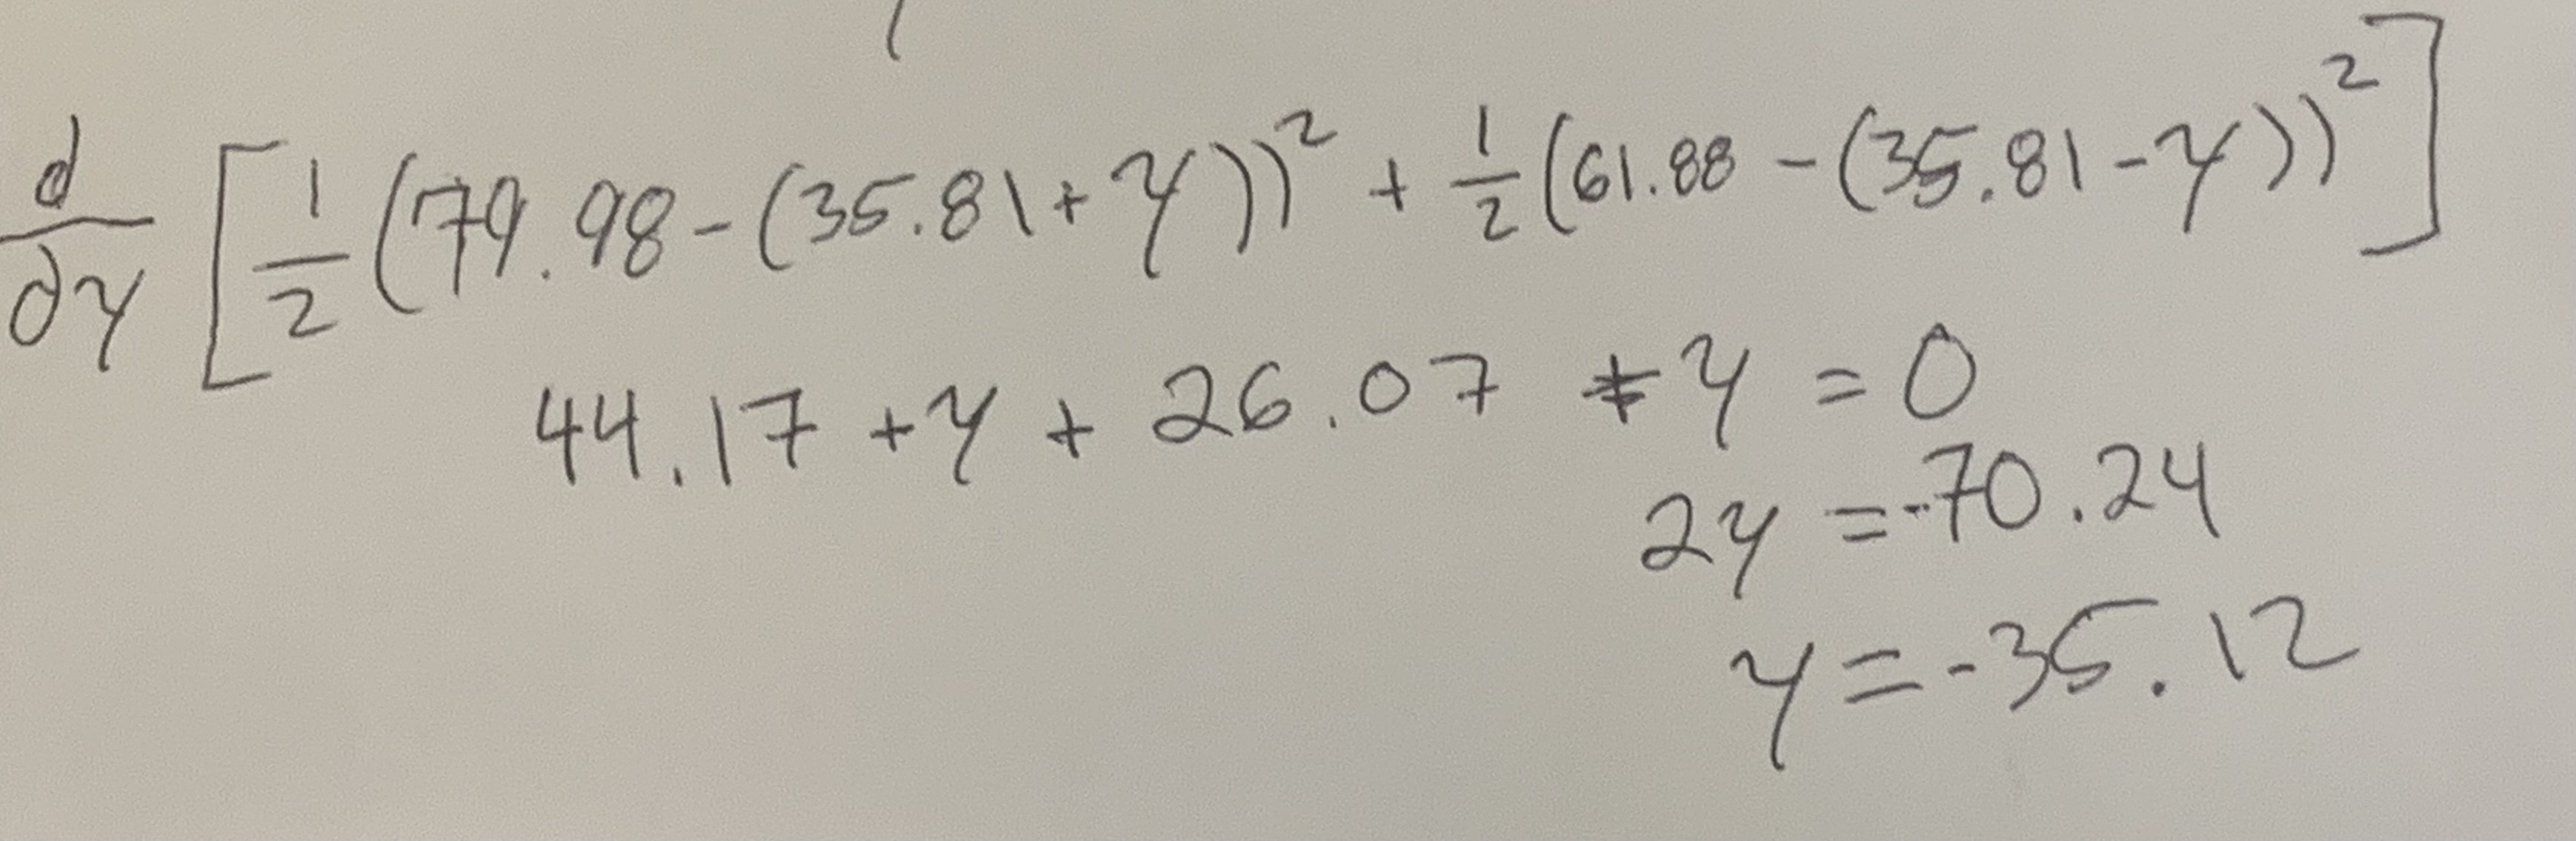 d/dy [1/2 (79.98 - (35.81 + y))² + 1/2 (61.88 - (35.81 - y))²]
44.17 + y + 26.07 + y = 0
2y = -70.24
y = -35.12